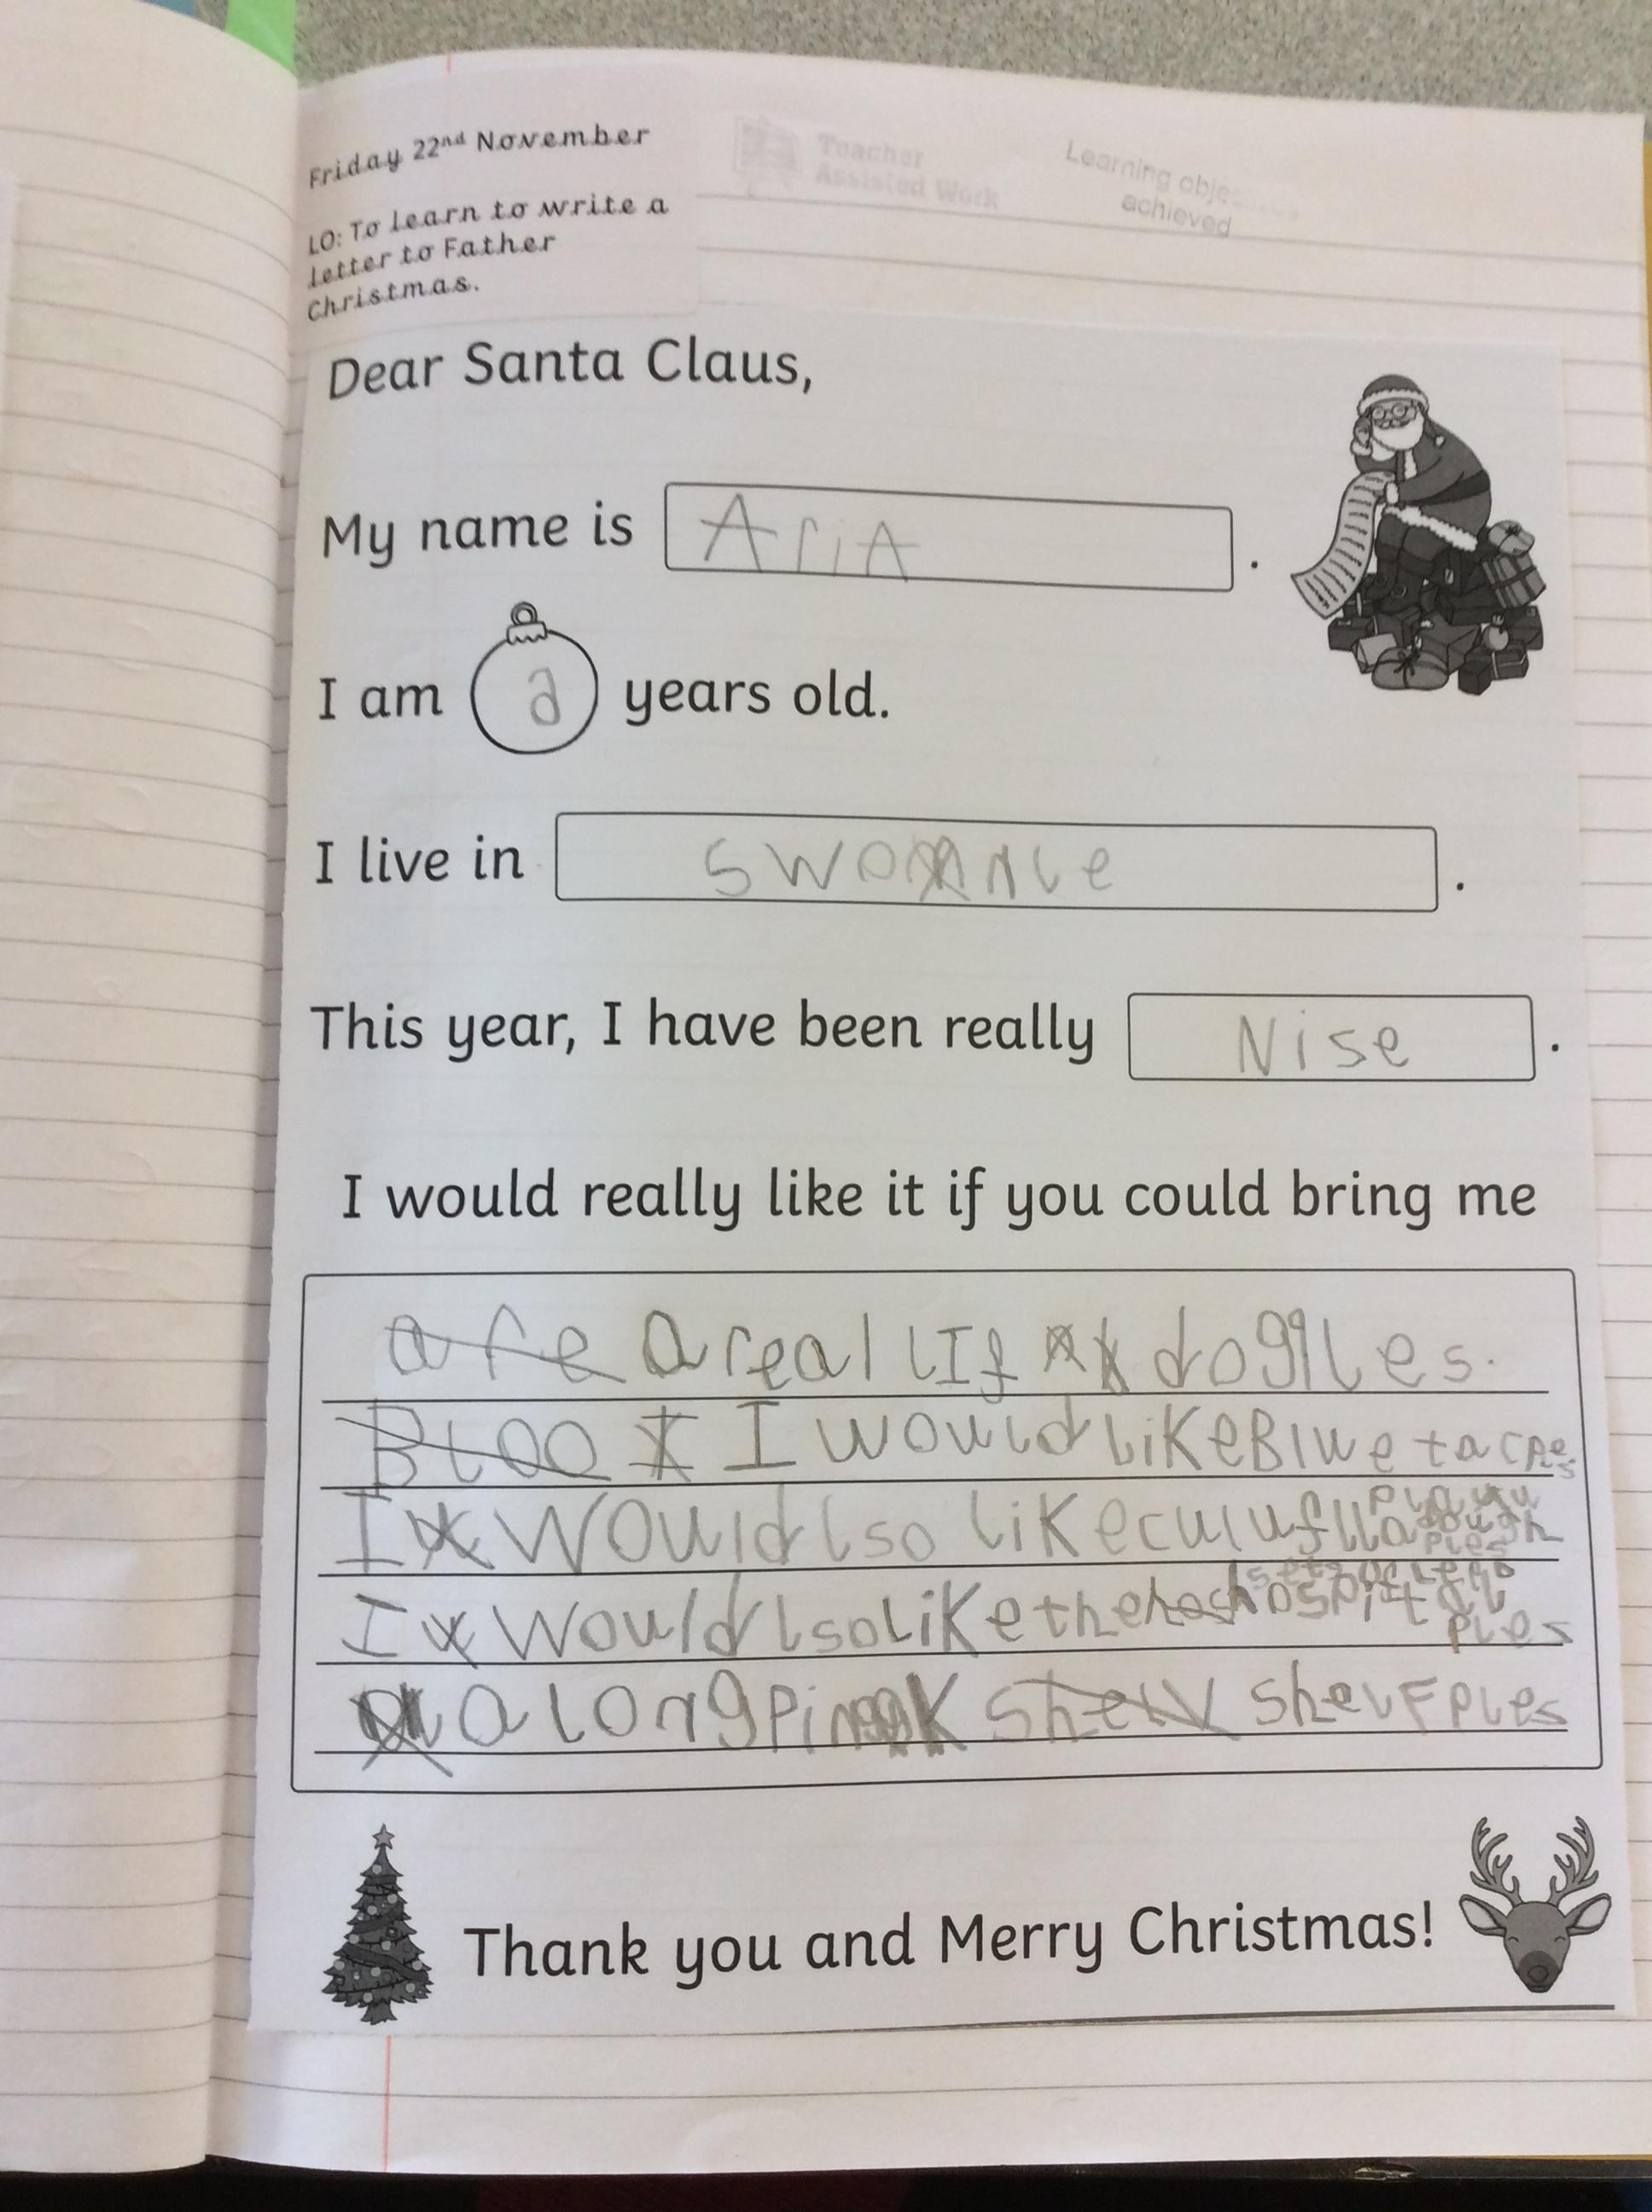 Friday 22nd November
LO: To learn to write a
letter to Father
Christmas.
Teacher
Assisted Work
Learning objective
achieved
Dear Santa Claus,
My name is AriA .
I am years old.
I live in .
This year, I have been really Nise .
I would really like it if you could bring me
are a real lIf doggles.
Bloo I I would like Blue tac ples
I would lso like culufll playu dough ples
I would lso like the hospital ples
a long pink shelv shelf ples
Thank you and Merry Christmas!